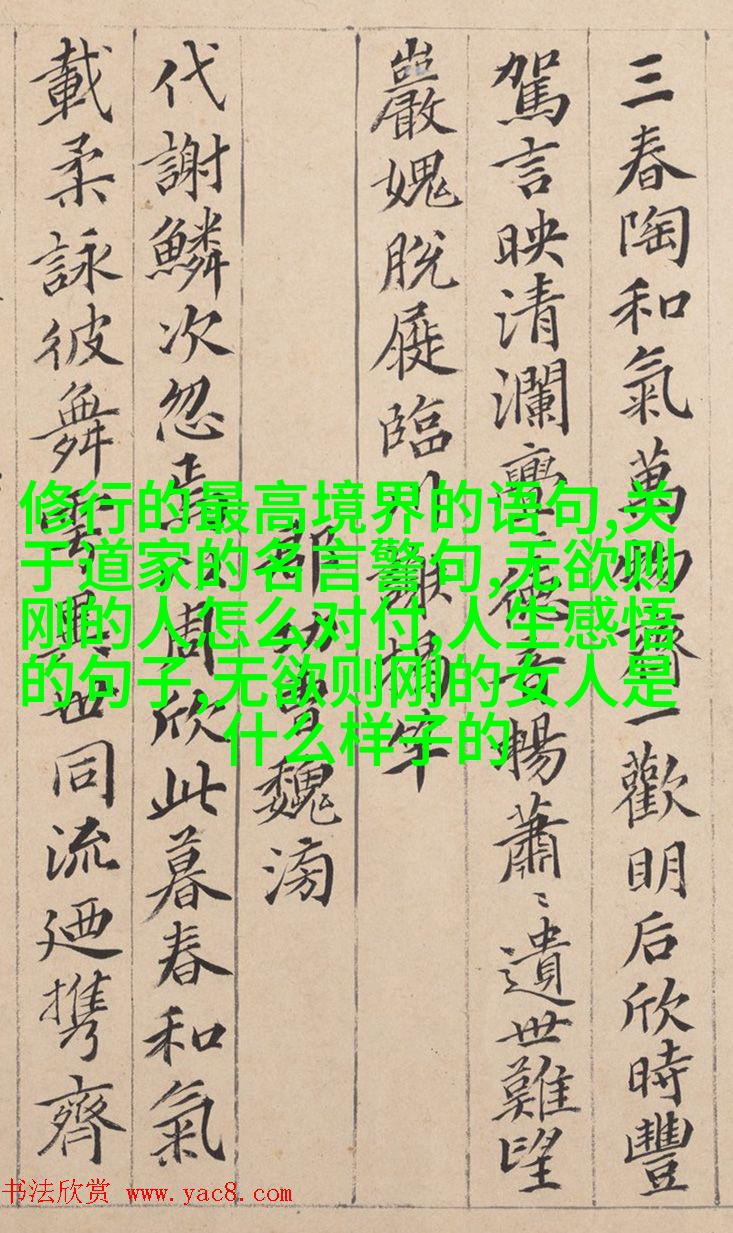 三春陶和氣萬物齊一歡明后欣時豐
駕言映清瀾亹〻德音暢蕭〻遺世難望
巖愧脫屣臨川謝揭竿
郡功曹魏滂
代謝鱗次忽焉以周欣此暮春和氣
載柔詠彼舞雩異世同流迺携齊
修行的最高境界的语句,关
于道家的名言警句,无欲则
刚的人怎么对付,人生感悟
的句子,无欲则刚的女人是
什么样子的
书法欣赏 www.yac8.com